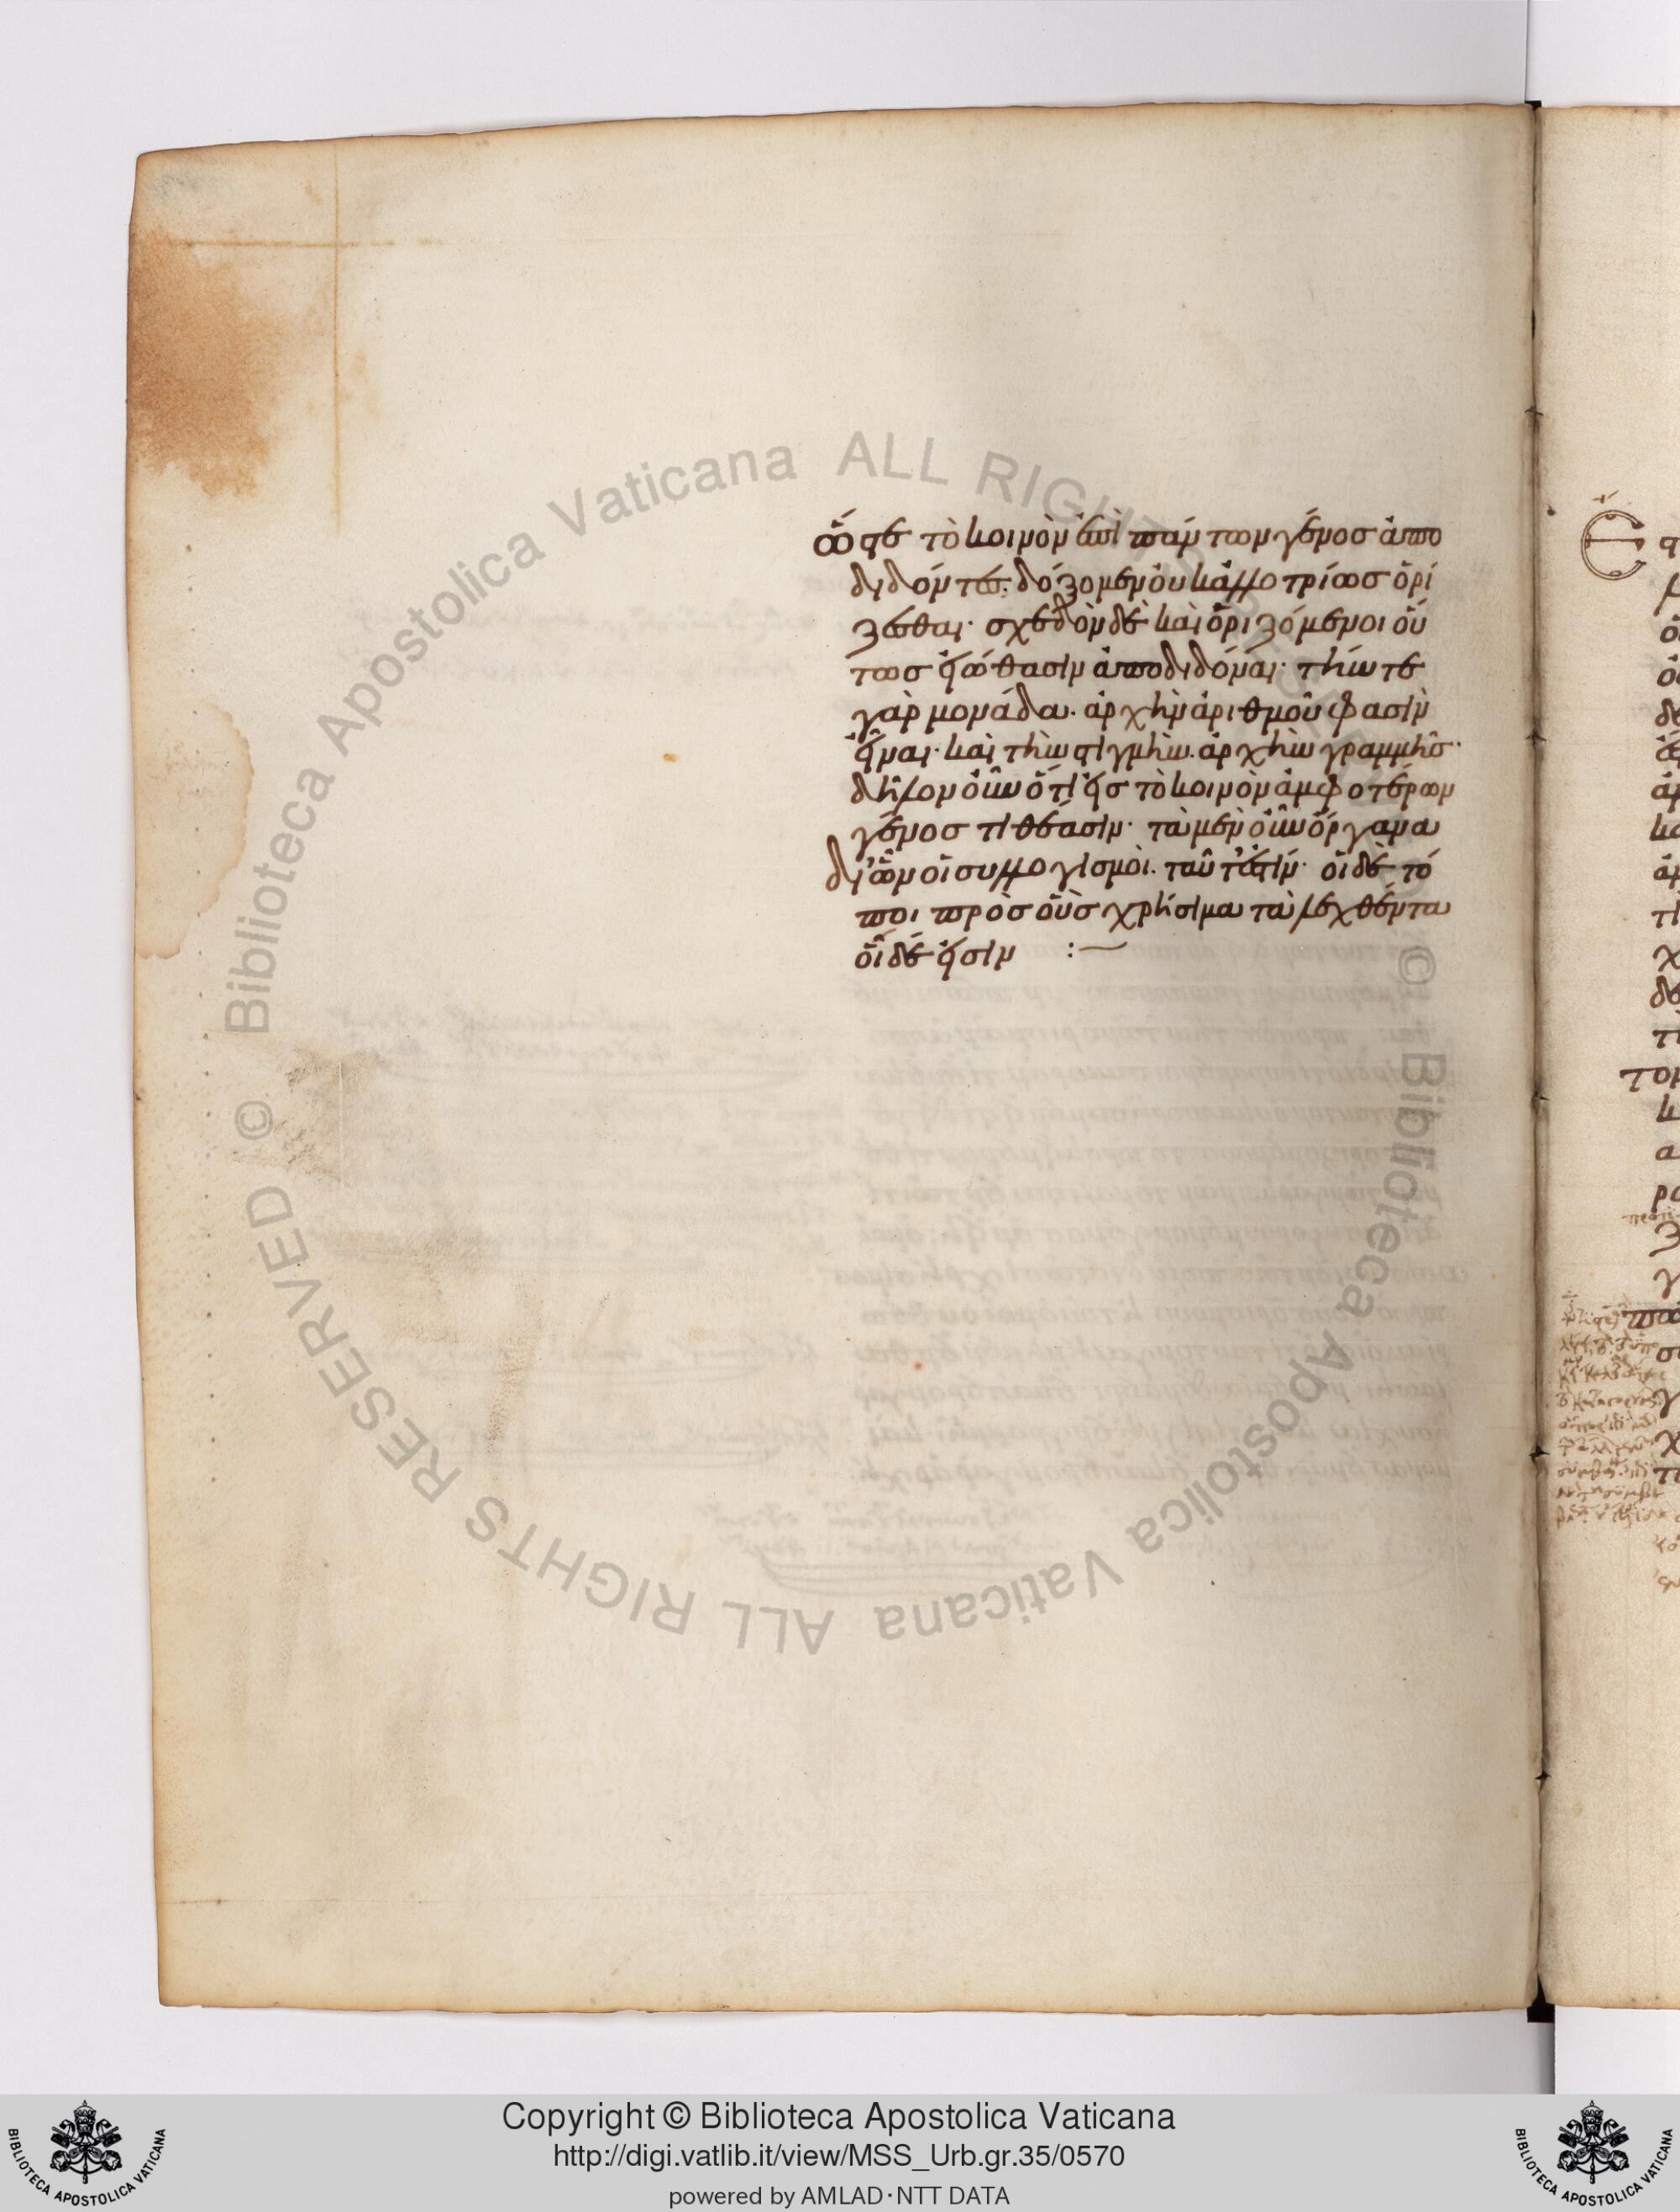 ὥστε τὸ κοινὸν ἐπὶ πάντων γένος ἀπο
διδόντες. δόξομεν οὐκ ἀλλοτρίως ὁρί
ζεσθαι· σχεδὸν δὲ καὶ ὁριζόμενοι οὕ
τως εἰώθασιν ἀποδιδόναι· τήν τε
γὰρ μονάδα. ἀρχὴν ἀριθμοῦ φασὶν
εἶναι· καὶ τὴν στιγμὴν. ἀρχὴν γραμμῆς·
δῆλον οὖν ὅτι εἰς τὸ κοινὸν ἀμφοτέρων
γένος τιθέασιν· τὰ μὲν οὖν ὄργανα
δι' ὧν οἱ συλλογισμοὶ. ταῦτ' ἐστίν· οἱ δὲ τό
ποι πρὸς οὓς χρήσιμα τὰ λεχθέντα
οἵδε εἰσίν :—
© Biblioteca Apostolica Vaticana ALL RIGHTS RESERVED
© Biblioteca Apostolica Vaticana ALL RIGHTS RESERVED
Copyright © Biblioteca Apostolica Vaticana
http://digi.vatlib.it/view/MSS_Urb.gr.35/0570
powered by AMLAD·NTT DATA
BIBLIOTECA APOSTOLICA VATICANA
BIBLIOTECA APOSTOLICA VATICANA